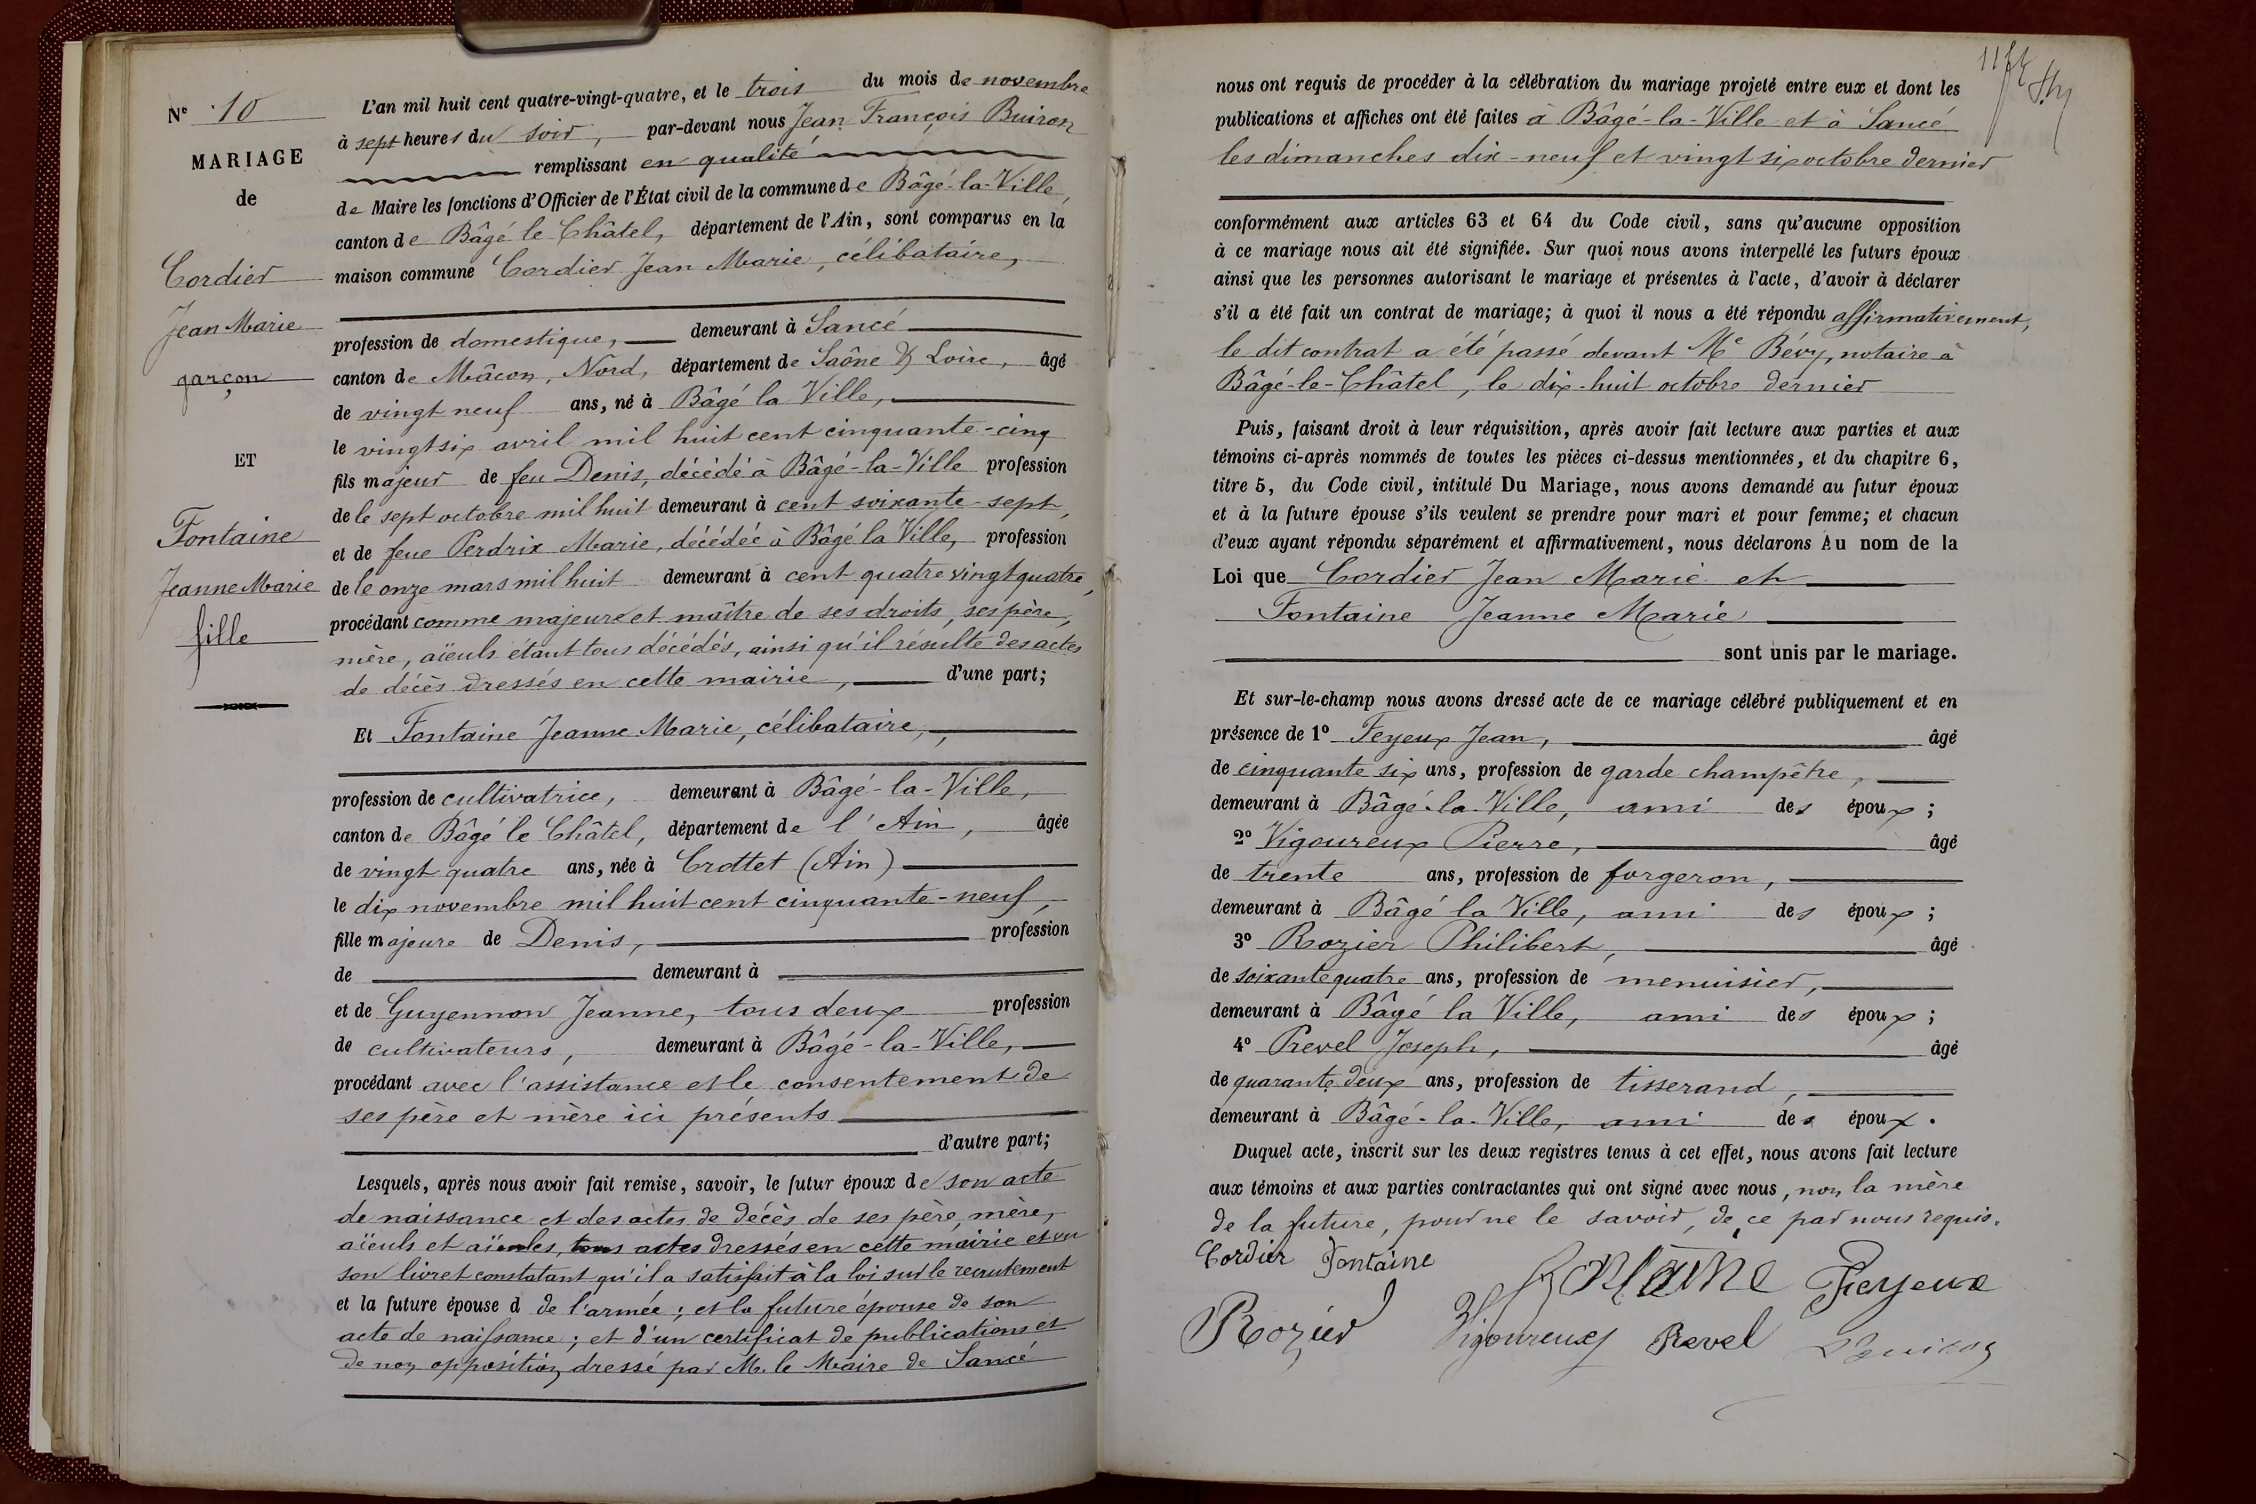 N° 10
MARIAGE
de
Cordier
Jean Marie
garçon
ET
Fontaine
Jeanne Marie
fille
L'an mil huit cent quatre-vingt-quatre, et le trois du mois de novembre
à sept heures du soir, par-devant nous Jean François Buiron
remplissant en qualité
de Maire les fonctions d'Officier de l'État civil de la commune de Bâgé-la-Ville,
canton de Bâgé le Châtel, département de l'Ain, sont comparus en la
maison commune Cordier Jean Marie, célibataire,
profession de domestique, demeurant à Sancé
canton de Mâcon, Nord, département de Saône & Loire, âgé
de vingt neuf ans, né à Bâgé la Ville,
le vingt six avril mil huit cent cinquante-cinq
fils majeur de feu Denis, décédé à Bâgé-la-Ville profession
de le sept octobre mil huit demeurant à cent soixante-sept,
et de feue Perdrix Marie, décédée à Bâgé la Ville, profession
de le onze mars mil huit demeurant à cent quatre vingt quatre,
procédant comme majeur et maître de ses droits, ses père,
mère, aïeuls étant tous décédés, ainsi qu'il résulte des actes
de décès dressés en cette mairie, d'une part;
Et Fontaine Jeanne Marie, célibataire,
profession de cultivatrice, demeurant à Bâgé-la-Ville,
canton de Bâgé le Châtel, département de l'Ain, âgée
de vingt quatre ans, née à Crottet (Ain)
le dix novembre mil huit cent cinquante-neuf,
fille majeure de Denis, profession
de demeurant à
et de Guyennon Jeanne, tous deux profession
de cultivateurs, demeurant à Bâgé-la-Ville,
procédant avec l'assistance et le consentement de
ses père et mère ici présents
d'autre part;
Lesquels, après nous avoir fait remise, savoir, le futur époux de son acte
de naissance et des actes de décès de ses père, mère,
aïeuls et aïeules, tous actes dressés en cette mairie et vu
son livret constatant qu'il a satisfait à la loi sur le recrutement
et la future épouse d de l'armée; et la future épouse de son
acte de naissance; et d'un certificat de publications et
de non opposition dressé par M. le Maire de Sancé
nous ont requis de procéder à la célébration du mariage projeté entre eux et dont les
publications et affiches ont été faites à Bâgé-la-Ville et à Sancé
les dimanches dix-neuf et vingt six octobre dernier
conformément aux articles 63 et 64 du Code civil, sans qu'aucune opposition
à ce mariage nous ait été signifiée. Sur quoi nous avons interpellé les futurs époux
ainsi que les personnes autorisant le mariage et présentes à l'acte, d'avoir à déclarer
s'il a été fait un contrat de mariage; à quoi il nous a été répondu affirmativement,
le dit contrat a été passé devant Me Bévy, notaire à
Bâgé-le-Châtel, le dix-huit octobre dernier
Puis, faisant droit à leur réquisition, après avoir fait lecture aux parties et aux
témoins ci-après nommés de toutes les pièces ci-dessus mentionnées, et du chapitre 6,
titre 5, du Code civil, intitulé Du Mariage, nous avons demandé au futur époux
et à la future épouse s'ils veulent se prendre pour mari et pour femme; et chacun
d'eux ayant répondu séparément et affirmativement, nous déclarons Au nom de la
Loi que Cordier Jean Marie et
Fontaine Jeanne Marie
sont unis par le mariage.
Et sur-le-champ nous avons dressé acte de ce mariage célébré publiquement et en
présence de 1° Feyeux Jean, âgé
de cinquante six ans, profession de garde champêtre,
demeurant à Bâgé-la-Ville, ami des époux;
2° Vigoureux Pierre, âgé
de trente ans, profession de forgeron,
demeurant à Bâgé la Ville, ami des époux;
3° Rozier Philibert, âgé
de soixante quatre ans, profession de menuisier,
demeurant à Bâgé la Ville, ami des époux;
4° Prevel Joseph, âgé
de quarante deux ans, profession de tisserand,
demeurant à Bâgé-la-Ville, ami des époux.
Duquel acte, inscrit sur les deux registres tenus à cet effet, nous avons fait lecture
aux témoins et aux parties contractantes qui ont signé avec nous, non la mère
de la future, pour ne le savoir, de ce par nous requis.
Cordier Fontaine Fontaine Feyeux
Rozier Vigoureux Prevel Buiron